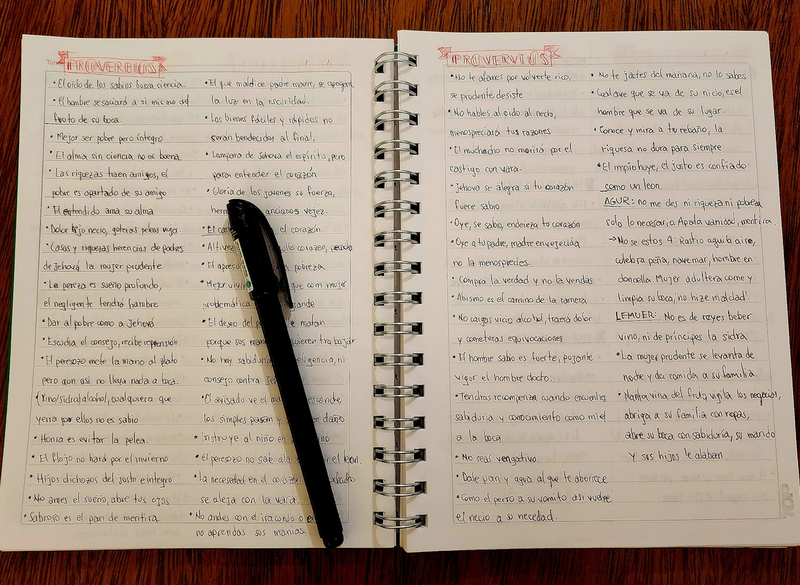 PROVERBIOS
• El oído de los sabios busca ciencia.
• El hombre se saciará a si mismo del
fruto de su boca.
• Mejor ser pobre pero íntegro
• El alma sin ciencia no es buena
• Las riquezas traen amigos, el
pobre es apartado de su amigo
• El entendido ama su alma
• Dolor hijo necio, goteras pelea mujer.
• Casas y riquezas herencias de padres
de Jehová la mujer prudente
• La pereza es sueño profundo,
el negligente tendrá hambre
• Dar al pobre como a Jehová
• Escucha el consejo, recibe reprensión
• El perezoso mete la mano al plato
pero aun asi no lleva nada a boca.
(Vino/sidra/alcohol, cualquiera que
yerra por ellos no es sabio
• Honra es evitar la pelea.
• El flojo no hará por el invierno
• Hijos dichozos del justo e integro
• No ames el sueño, abre tus ojos
• Sabroso es el pan de mentira.
• El que maldice padre madre, se apagará
la luz en la oscuridad.
• Los bienes fáciles y rápidos no
serán bendecidos al final.
• Lampara de Jehova el espíritu, pero
para entender el corazón
• Gloria de los jovenes su fuerza,
ancianos vejez.
el corazón.
corazón, pecado.
• El pobreza
• Mejor con mujer
problemática
• El deseo del matan
porque sus man quieren trabajar
• No hay sabidur ni
consejo contra Je
• El avisado ve el mal esconde,
los simples pasan y daño
• Instruye al niño en
• El perezoso no sale
• La necedad en el corazon
se aleja con la vara.
• No andes con el iracundo o
no aprendas sus manias.
PROVERVIOS
• No te afanes por volverte rico,
se prudente desiste
• No hables al oido al necio,
menospreciará tus razones
• El muchacho no morirá por el
castigo con vara.
• Jehova se alegra si tu corazón
fuere sabio
• Oye, se sabio, endereza tu corazón
• Oye a tu padre, madre envejecida
no la menosprecies.
• Compra la verdad y no la vendas
• Abismo es el camino de la ramera
• No caigas vicio alcohol, traerá dolor
y cometeras equivocaciones
• El hombre sabio es fuerte, pujante
vigor el hombre docto.
• Tendras recompenza cuando encuentres
sabiduria y conocimiento como miel
a la boca
• No seas vengativo.
• Dale pan y agua al que te aborrece
• Como el perro a su vomito asi vuelve
el necio a su necedad.
• No te jactes del mañana, no lo sabes
• Cual ave que se va de su nicio, es el
hombre que se va de su lugar.
• Conoce y mira a tu rebaño, la
riquesa no dura para siempre
• El impio huye, el justo es confiado
como un leon.
AGUR: no me des ni riqueza ni pobreza,
solo lo necesario. Aparta vanidad, mentira
→ No se estos 4: Rastro aguila aire,
culebra peña, nave mar, hombre en
doncella. Mujer adultera come y
limpia su boca, no hize maldad.
LEMUER: No es de reyes beber
vino, ni de principes la sidra
• La mujer prudente se levanta de
noche y da comida a su familia
• Planta viña del fruto, vigila los negocios,
abriga a su familia con ropas,
abre su boca con sabiduria, su marido
y sus hijos le alaban.